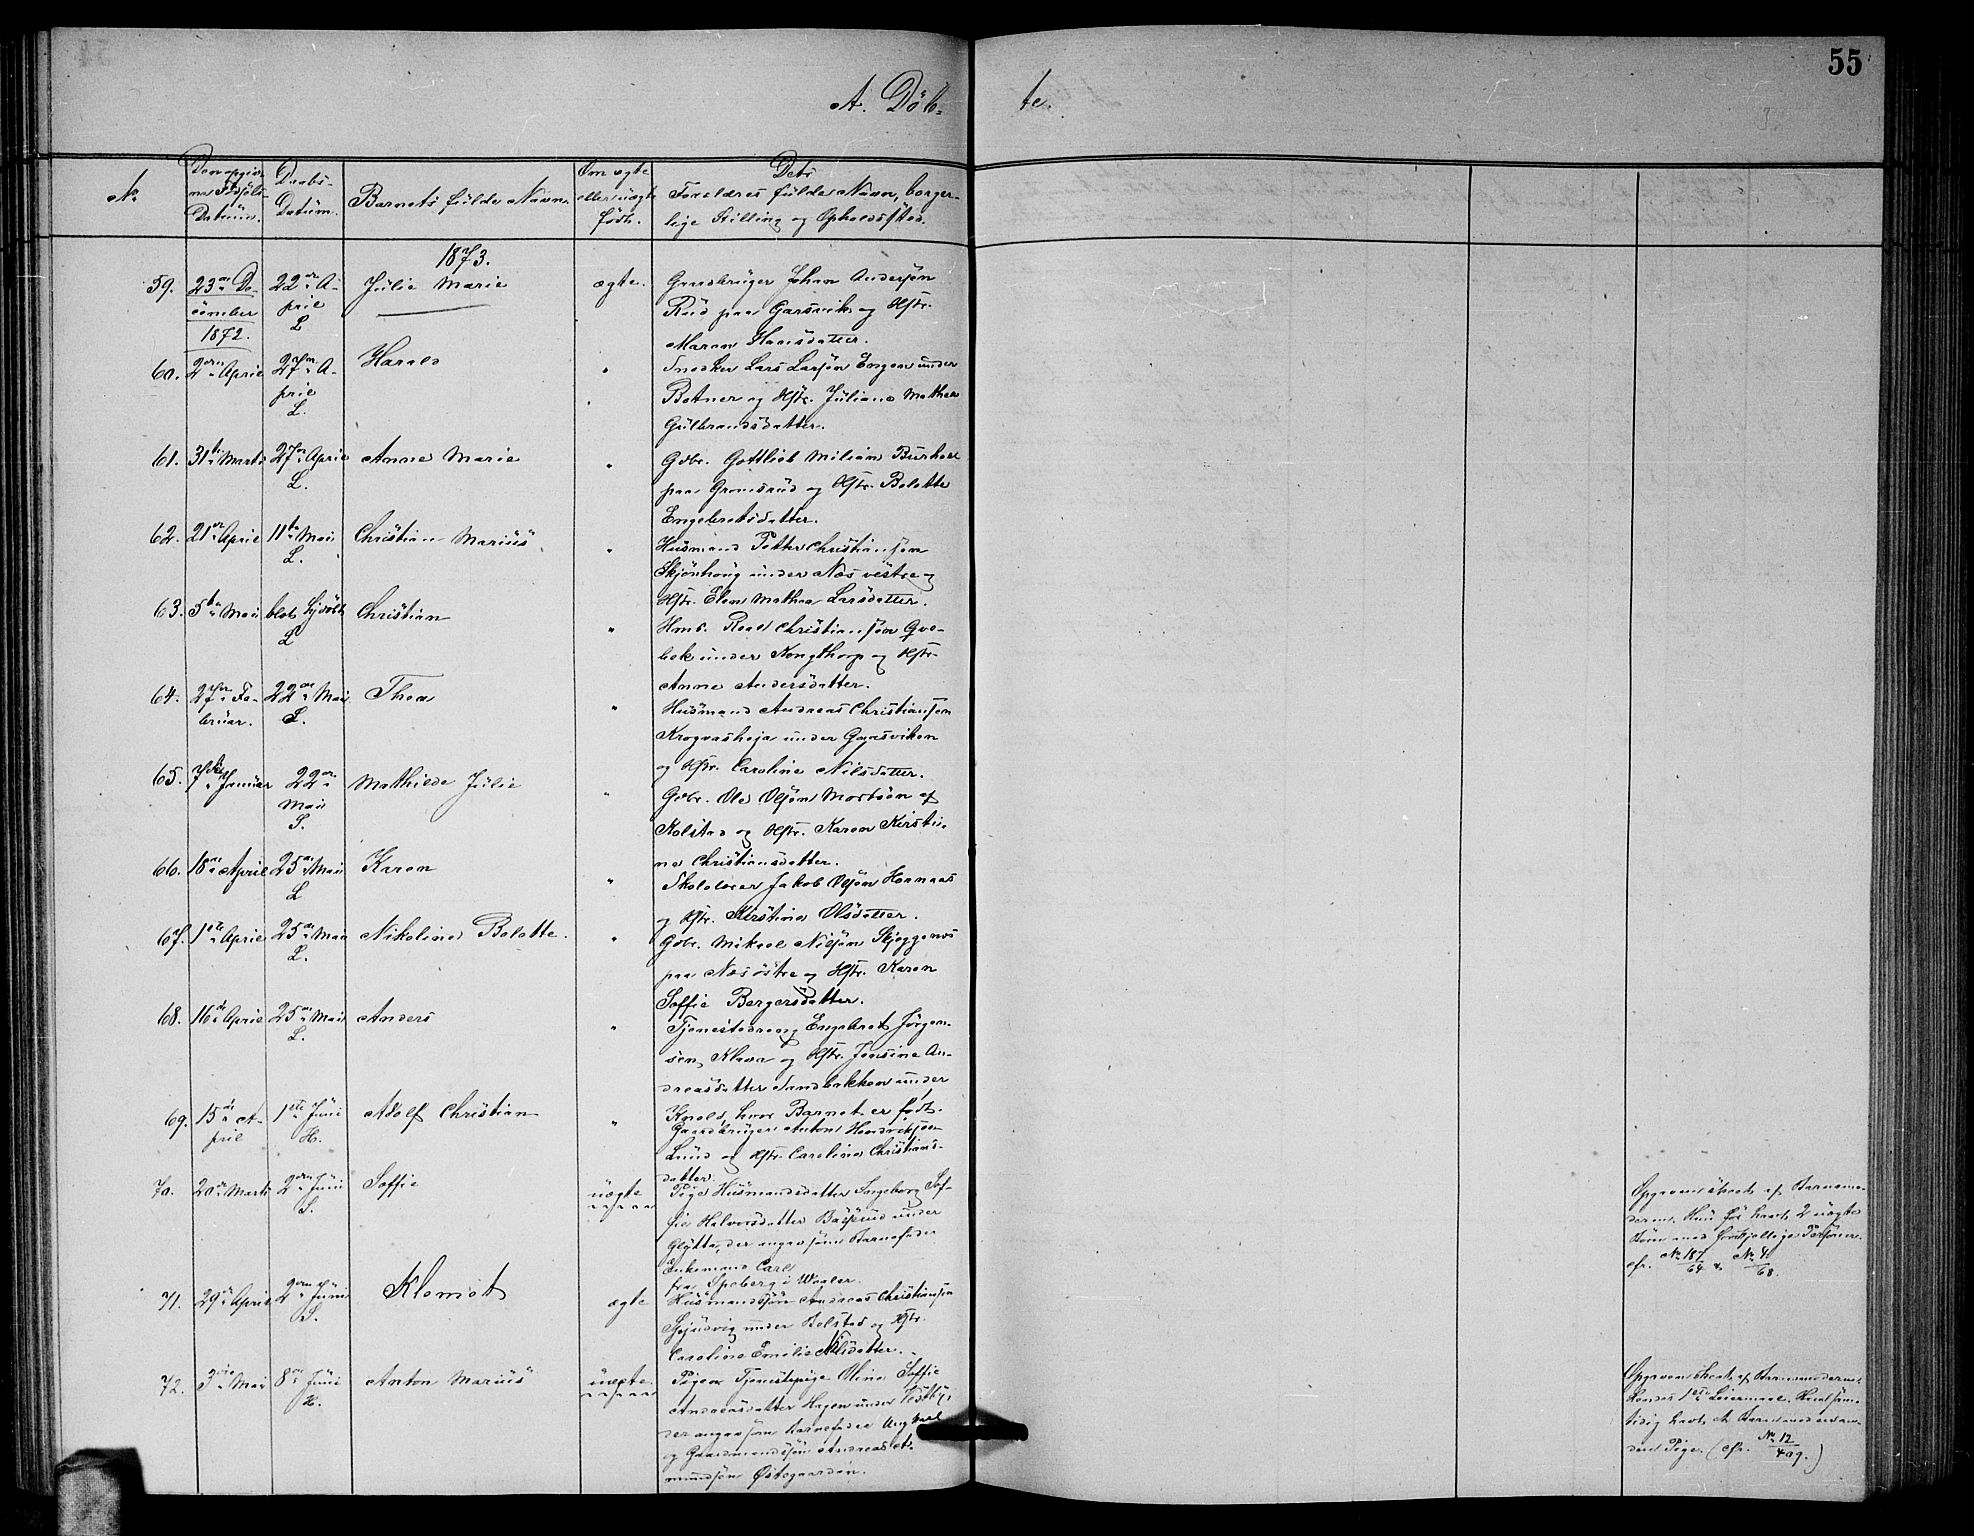 55
A. Döb-
te.
No
Den opgiv-
ne Födsels-
Datum.
Daabs-
Datum.
Barnets fulde Navn.
Om ægte
eller uægte
födt.
Dets
Forældres fulde Navn, borger-
lige Stilling og Opholdssted.
1873.
59. 23de De-
cember
1872.
22de A-
pril
L
Julie Marie
ægte.
Gaardbruger Johan Andersön
Rud paa Garsvik og Hstr.
Maren Hansdatter.
60. 2den April
27de A-
pril
L.
Harald
"
Snedker Lars Larsön Engen under
Botner og Hstr. Juliane Mathea
Gulbrandsdatter.
61. 31te Marts
27de April
L.
Anne Marie
"
Gdbr. Gottlieb
paa Gromsrud og Hstr. Bolette
Engebretsdatter.
62. 21de April
11te Mai
L.
Christian Marius
"
Husmand Petter Christiansön
Skjönhoug under Næs vestre og
Hstr. Elen Mathea Larsdatter.
63. 5te Mai
L
Christian
"
Hmd. Christiansön
under og Hstr.
Anne Andersdatter.
64. 27de Fe-
bruar.
22de Mai
S.
Thea
"
Husmand Andreas Christiansön
under Garsviken
og Hstr. Caroline Nilsdatter.
65. 7de Januar
22de
Mai
S.
Mathilde Julie
"
Gdbr. Ole Olsön af
Kolstad og Hstr. Karen Kirsti-
ne Christiansdatter.
66. 18de April
25de Mai
L
Karen
"
Skolelærer Jakob Olsön Hornaas
og Hstr. Kirstine Olsdatter.
67. 1ste April
25de Mai
L.
Nikoline Bolette.
"
Gdbr. Mikael Nilsön
paa Næs östre og Hstr. Karen
Soffie Bergersdatter.
68. 16de April
25de Mai
L.
Anders
"
Tjenestedreng Engebret Jörgen-
sen Klava og Hstr. Jensine An-
dreasdatter Sandbakken under
Knold, hvor Barnet er födt.
69. 15de A-
pril
1ste Juni
H.
Adolf Christian
"
Gaardbruger Anton Hendriksön
Lund og Hstr. Caroline Christians-
datter.
70. 20de Marts
2den Juni
S.
Soffie
uægte
Pige Husmandsdatter Ingeborg Sof-
fie Halvorsdatter under
Glytte, der angav som Barnefader
Enkemand Carl
fra Speberg i Waaler.
Opgaven skeet af Barnemo-
deren. Hun för havt 2 uægte
Börn med forskjellige Personer.
cfr. No 187/64 & No 4/68.
71. 29de April
2den Juni
S.
Klemet
ægte
Husmandssön Andreas Christiansön
under Bolstad og Hstr.
Caroline Emilie Nilsdatter.
72. 3die Mai
8de Juni
H.
Anton Marius
uægte.
Pigen Tjenestepige Oline Soffie
Andreasdatter Hagen under Vestby,
der angav som Barnefader Ungkarl
og Gaardmandssön Andreas A-
mundsön Östegaarden.
Opgaven skeet af Barnemoderen.
Hendes 1ste Leiermaal. Han sam-
tidig havt et Barn med en an-
den Pige. (cfr. No 12/409.)